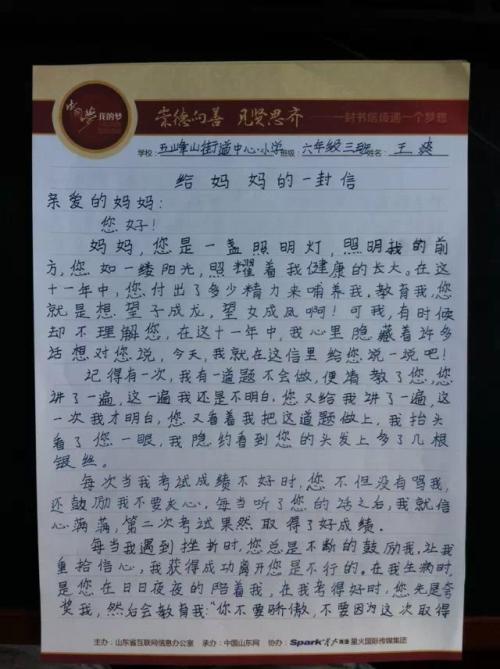 中国梦 我的梦
崇德向善 见贤思齐 一封书信传递一个梦想
学校：五峰山街道中心小学 班级：六年级三班 姓名：王
给妈妈的一封信
亲爱的妈妈：
您好！
妈妈，您是一盏照明灯，照明我的前
方，您如一缕阳光，照耀着我健康的长大。在这
十一年中，您付出了多少精力来哺养我，教育我，您
就是想望子成龙，望女成凤啊！可我，有时候
却不理解您，在这十一年中，我心里隐藏着许多
话想对您说，今天，我就在这信里给您说一说吧！
记得有一次，我有一道题不会做，便请教了您，您
讲了一遍，这一遍我还是不明白，您又给我讲了一遍，这
一次我才明白，您又看着我把这道题做上，我抬头
看了您一眼，我隐约看到您的头发上多了几根
银丝。
每次当我考试成绩不好时，您不但没有吗我，
还鼓励我不要灰心，每当听了您的话之后，我就信
心满满，第二次考试果然取得了好成绩。
每当我遇到挫折时，您总是不断的鼓励我，让我
重拾信心，我获得成功离开您是不行的，在我生病时，
是您在日日夜夜的陪着我，在我考得好时，您先是会
奖我，然后会教育我：“你不要骄傲，不要因为这次取得
主办：山东省互联网信息办公室 承办：中国山东网 协办：Spark 星火国际传媒集团